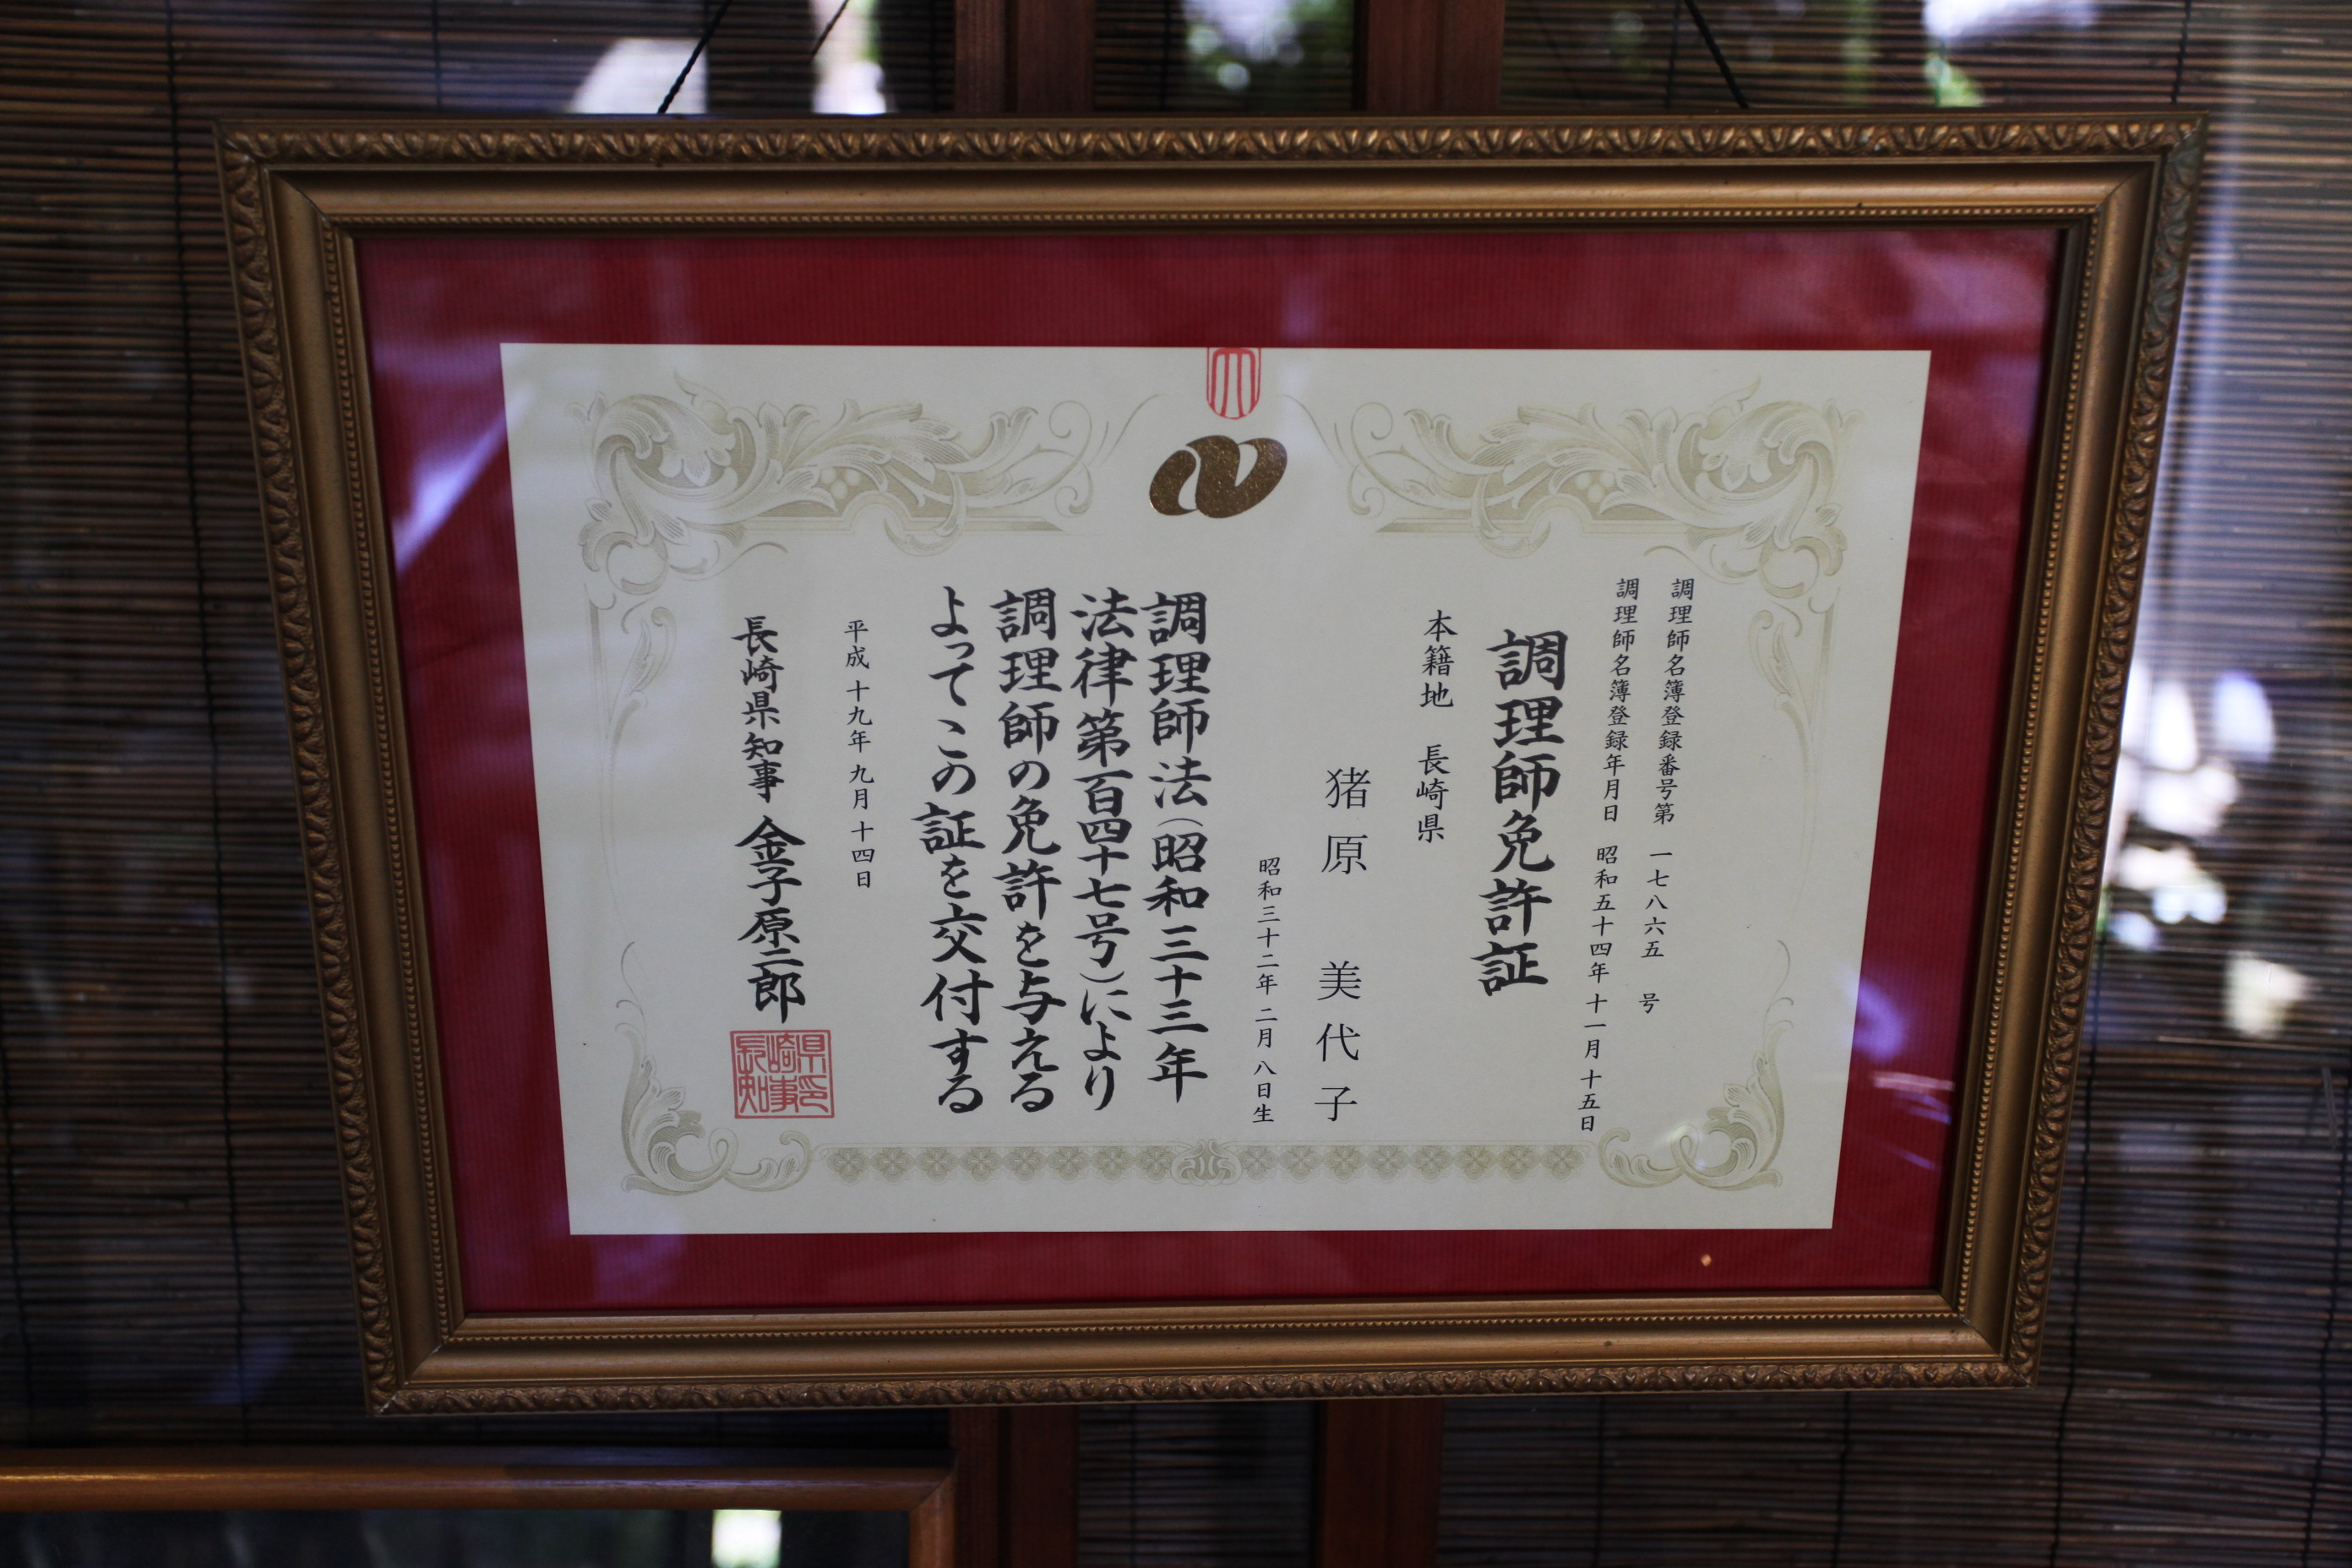 調理師名簿登録番号第 一七八六五 号
調理師名簿登録年月日 昭和五十四年 十一月 十五日
調理師免許証
本籍地 長崎県
猪原 美代子
昭和三十二年 二月 八日生
調理師法(昭和三十三年
法律第百四十七号)により
調理師の免許を与える
よってこの証を交付する
平成 十九年 九月 十四日
長崎県知事 金子原二郎
長崎県知事印